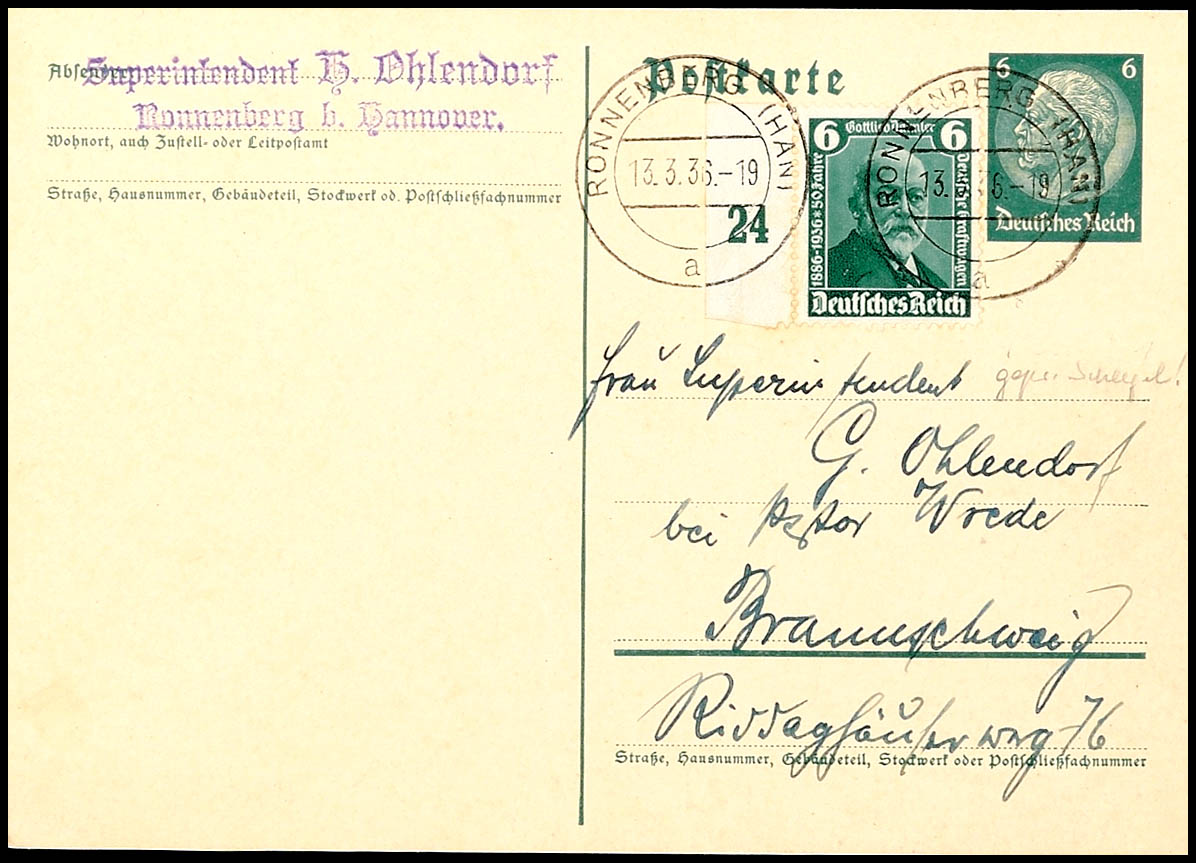 Absender:
Superintendent H. Ohlendorf
Ronnenberg b. Hannover.
Wohnort, auch Zustell- oder Leitpostamt
Straße, Hausnummer, Gebäudeteil, Stockwerk od. Postschließfachnummer
Postkarte
RONNENBERG (HAN)
13.3.36.-19
a
24
6 Gottlieb Daimler 6
1886-1936 * 50 Jahre
Deutsche Kraftwagen
Deutsches Reich
RONNENBERG (HAN)
13.3.36.-19
a
6 6
Deutsches Reich
Frau Superintendent
G. Ohlendorf
bei Pastor Wrede
Braunschweig
Riddaghäuserweg 76
Straße, Hausnummer, Gebäudeteil, Stockwerk oder Postschließfachnummer